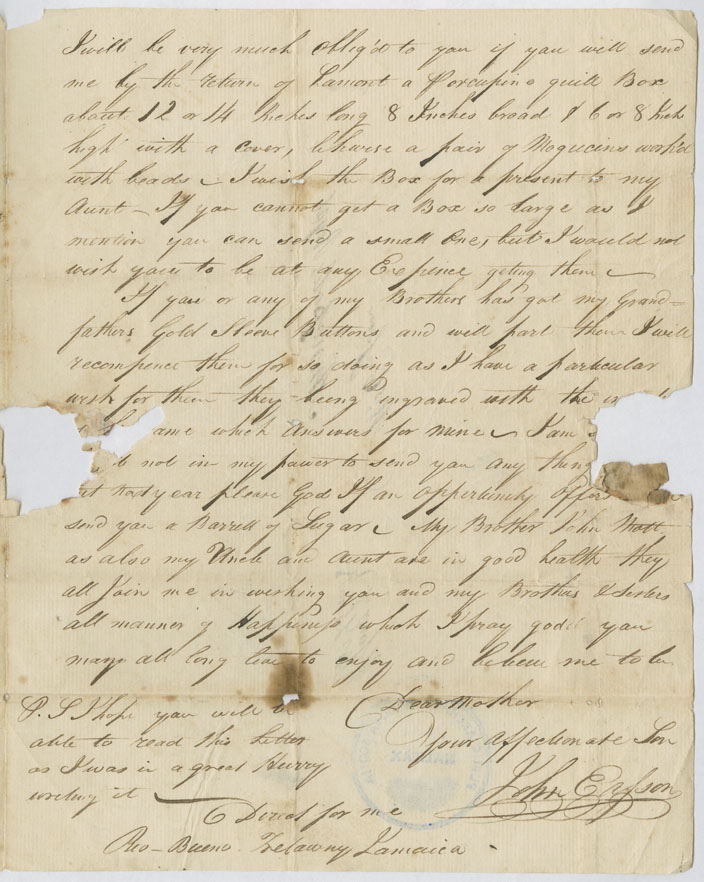 I will be very much Oblig'd to you if you will send
me by the return of Lamont a Porcupine quill Box
about 12 or 14 Inches long 8 Inches broad & 6 or 8 Inch
high with a cover, likwise a pair of Mogucins work'd
with beads I wish the Box for a present to my
Aunt – If you cannot get a Box so large as I
mention you can send a small One, but I would not
wish you to be at any Expence geting them
If you or any of my Brothers has got my Grand=
fathers Gold Sleeve Buttons and will part them I will
recompence them for so doing as I have a particular
wish for them they being ingraved with the
ame which Answers for mine I am
not in my power to send you any thing
next year please God If an oppertunity Offers
send you a Barrell of Sugar My Brother John
as also my Uncle and Aunt are in good health they
all Join me in wishing you and my Brothers & Sisters
all manner of Happiness which I pray god you
may all long live to enjoy and believe me to be
Dear Mother
Your Affectionate Son
John
P. S I hope you will be
able to read this Letter
as I was in a great Hurry
writing it
Direct for me
Rio-Bueno Trelawny Jamaica